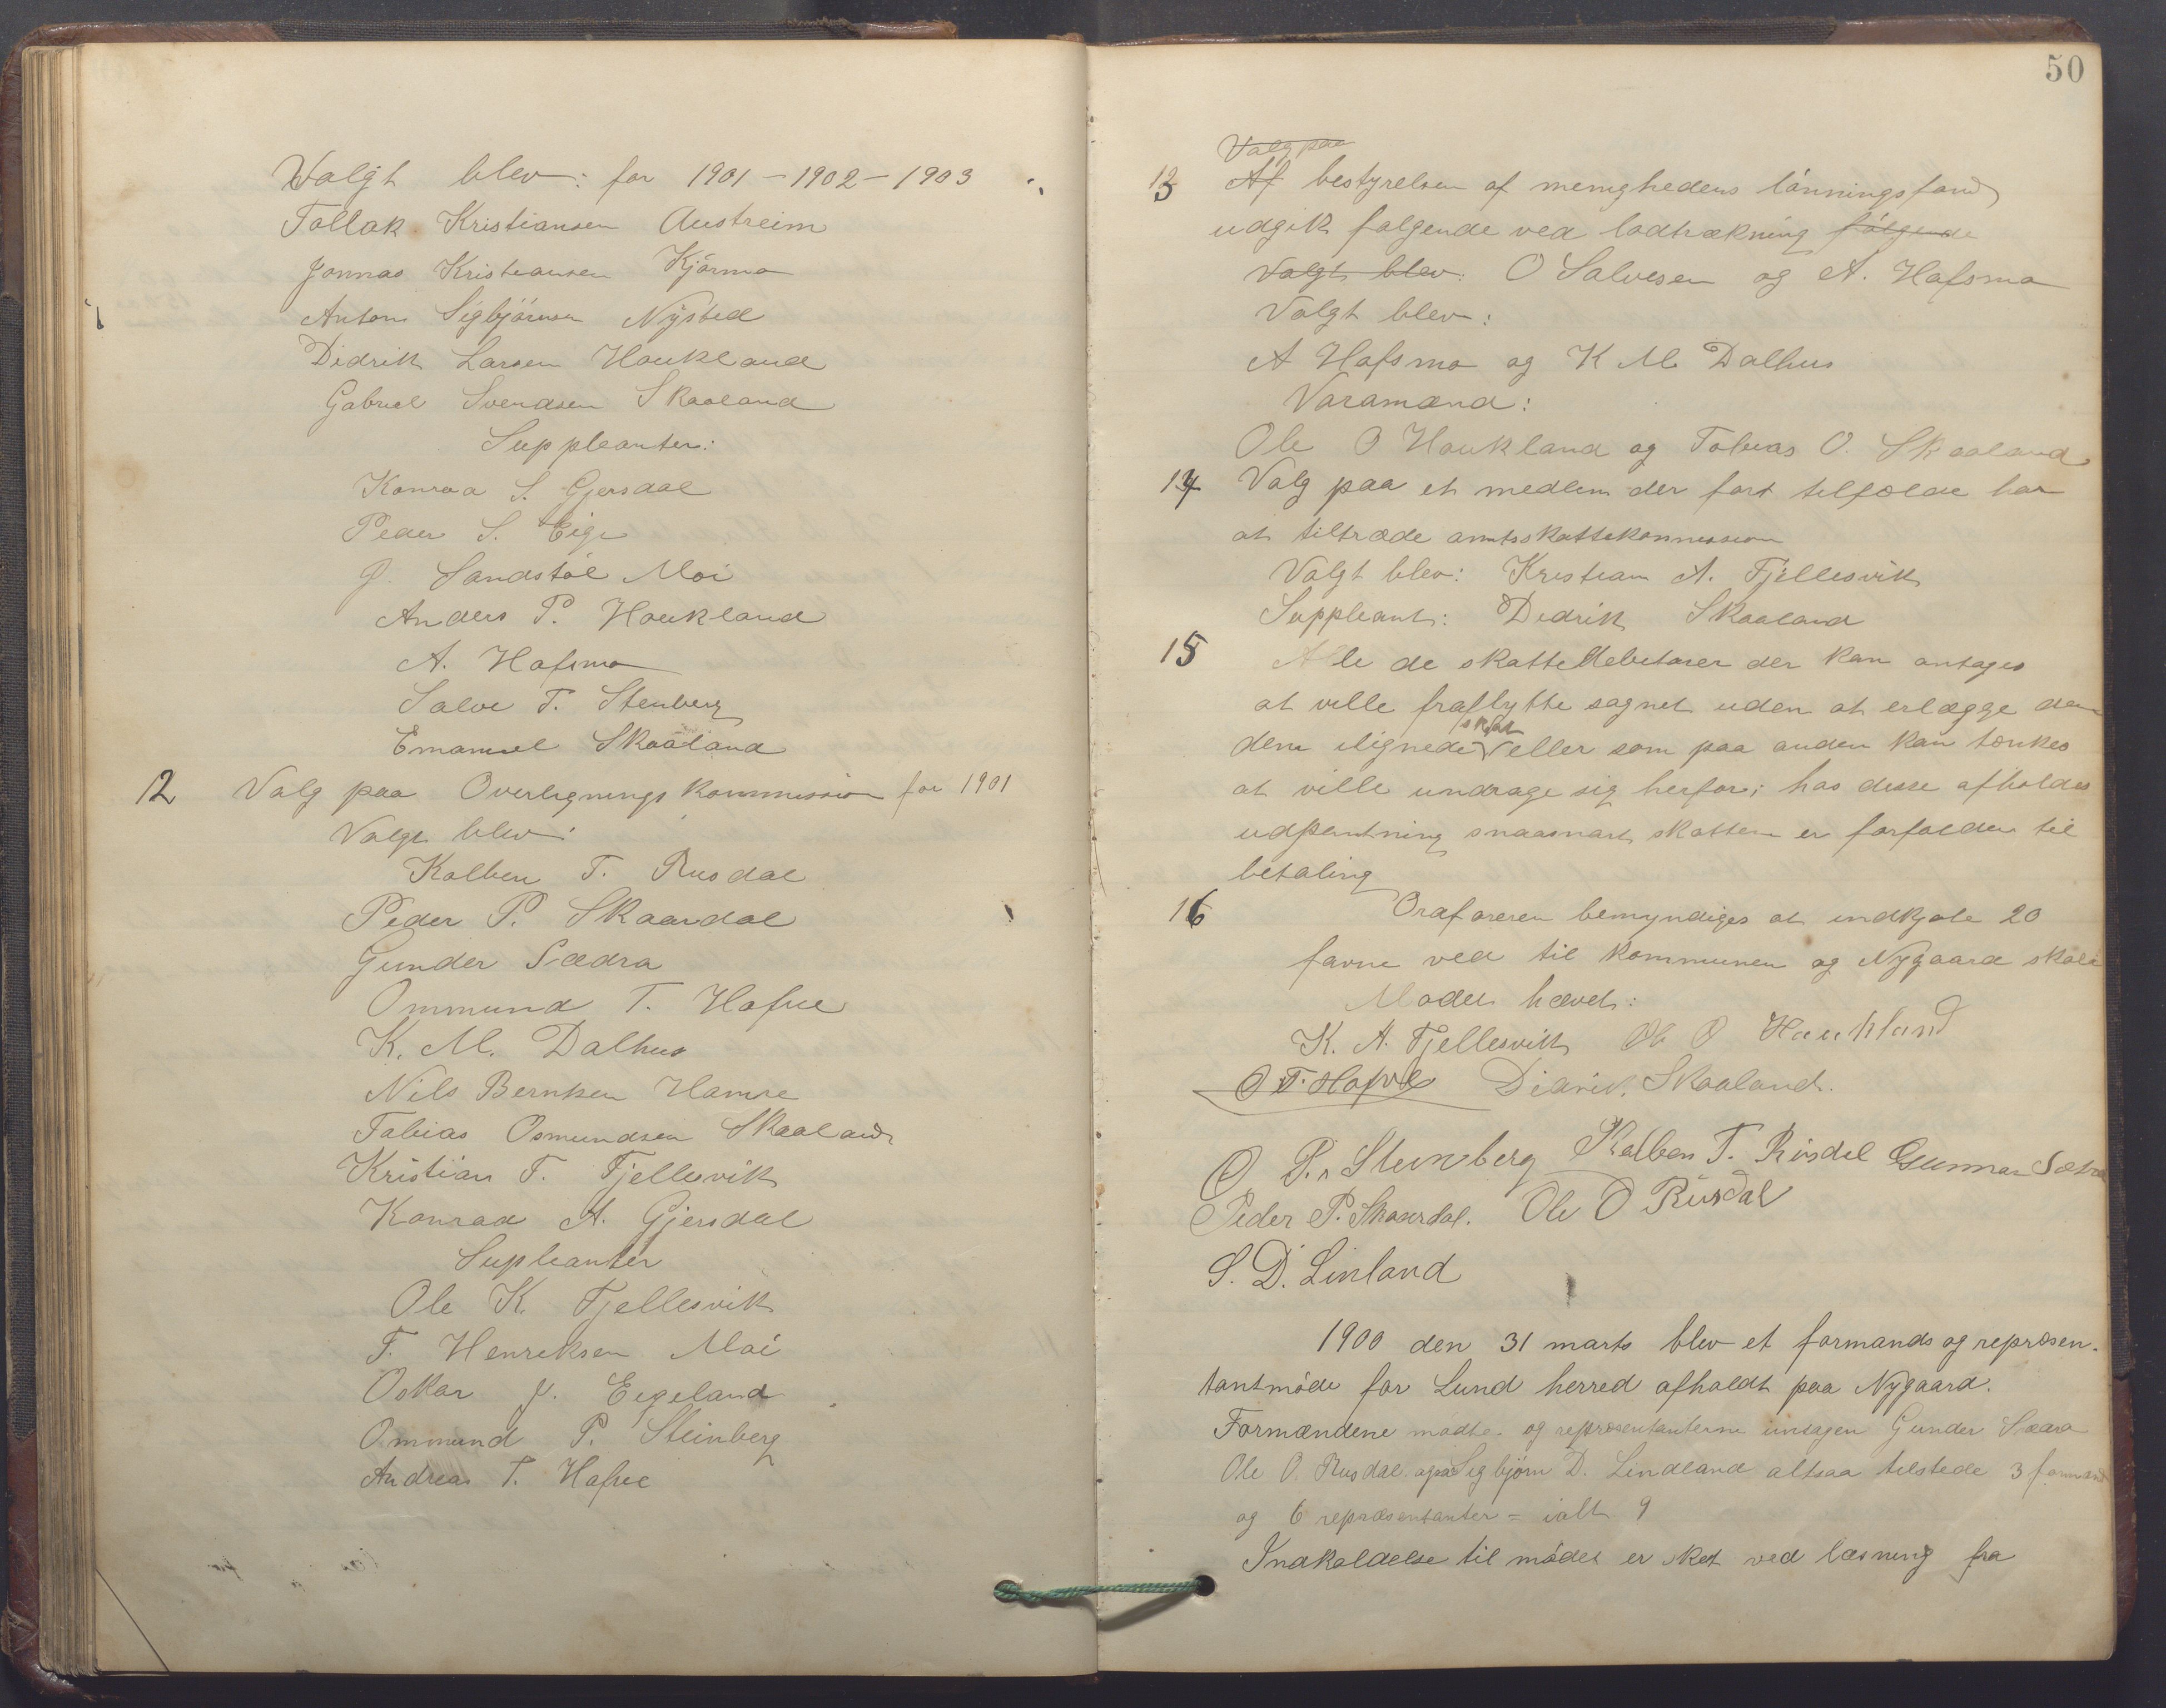 Valgt blev: for 1901-1902-1903
Tollak Kristiansen Austreim
Jonnas Kristiansen Kjörmo
Anton Sigbjörnsen Nysted
Didrik Larsen Haukland
Gabriel Svendsen Skaaland
Suppleanter:
Konrad S. Gjersdal
Peder S. Eige
J. Sandstøl Moi
Anders P. Haukland
A. Hafsmo
Salve T. Stenberg
Emanuel Skaaland
12 Valg paa Overlignings kommission for 1901
Valgt blev:
Kolben T. Rusdal
Peder P. Skaardal
Gunder Sædra
Ommund T. Hafue
K. M. Dalhus
Nils Berntsen Hamre
Tobias Osmundsen Skaaland
Kristian T. Fjellesvik
Konrad A. Gjersdal
Supleanter
Ole K. Fjellesvik
T. Henriksen Moi
Oskar J. Eigeland
Ommund P. Steinberg
Andreas T. Hafue
50
Valg paa
13 Af bestyrelsen af menighedens lönningsfond
udgik følgende ved lodtrækning følgende
Valgt blev: O Salvesen og A. Hafsmo
Valgt blev:
A Hafsmo og K M Dalhus
Varamænd:
Ole O Haukland og Tobias O. Skaaland
14 Valg paa et medlem der fort tilfælde har
at tiltræde amtsskattekommission
Valgt blev: Kristian A. Fjellesvik
Suppleant: Didrik Skaaland
15 Alle de skattedebitorer der kan antages
at ville fraflytte sognet uden at erlægge den
skat
dem ilignede eller som paa anden kan tænkes
at ville undrage sig herfor; hos disse afholdes
udpantning snaasnart skatten er forfalden til
betaling
16 Ordføreren bemyndiges at indkjøbe 20
favne ved til kommunen og Nygaard skole
Mødet hævet:
K. A. Fjellesvik Ole O Haukland
O T. Hafve Didrik. Skaaland.
O P. Steinberg Kolben T. Rusdal Gunnar Sætra
Peder P. Skaardal. Ole O Rusdal
S. D. Linland
1900 den 31 marts blev et formands og repræsen-
tantmöde for Lund herred afholdt paa Nygaard.
Formændene mødte og repræsentanterne untagen Gunder Sædra
Ole O. Rusdal ogsaa Sigbjørn D. Lindland altsaa tilstede 3 formænd
og 6 repræsentanter = ialt 9
Indkaldelse til mödet er sket ved læsning fra